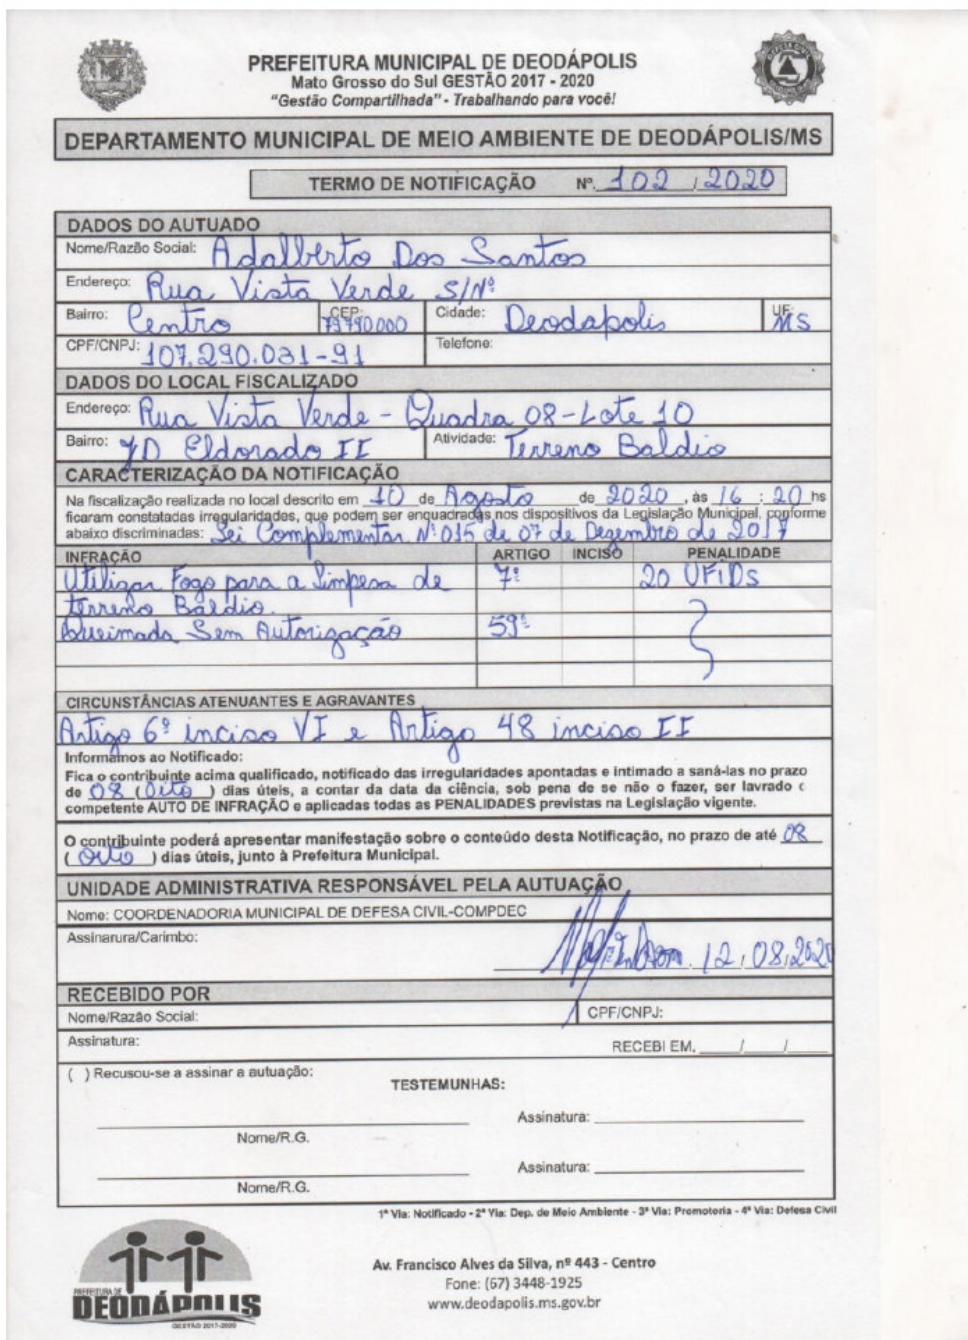 PREFEITURA MUNICIPAL DE DEODÁPOLIS
Mato Grosso do Sul GESTÃO 2017 - 2020
"Gestão Compartilhada" - Trabalhando para você!
DEPARTAMENTO MUNICIPAL DE MEIO AMBIENTE DE DEODÁPOLIS/MS
TERMO DE NOTIFICAÇÃO Nº. 102 / 2020
DADOS DO AUTUADO
Nome/Razão Social: Adalberto Dos Santos
Endereço: Rua Vista Verde S/Nº
Bairro: Centro CEP: 79790000 Cidade: Deodapolis UF: MS
CPF/CNPJ: 107.290.031-91 Telefone:
DADOS DO LOCAL FISCALIZADO
Endereço: Rua Vista Verde - Quadra 08 - Lote 10
Bairro: JD Eldorado II Atividade: Terreno Baldio
CARACTERIZAÇÃO DA NOTIFICAÇÃO
Na fiscalização realizada no local descrito em 10 de Agosto de 2020, às 16 : 20 hs
ficaram constatadas irregularidades, que podem ser enquadradas nos dispositivos da Legislação Municipal, conforme
abaixo discriminadas: Lei Complementar Nº 015 de 07 de Dezembro de 2017
INFRAÇÃO ARTIGO INCISO PENALIDADE
Utilizar Fogo para a Limpesa de 7º 20 UFIDs
terreno Baldio.
Queimada Sem Autorização 59º
CIRCUNSTÂNCIAS ATENUANTES E AGRAVANTES
Artigo 6º inciso VI e Artigo 48 inciso II
Informamos ao Notificado:
Fica o contribuinte acima qualificado, notificado das irregularidades apontadas e intimado a saná-las no prazo
de 08 (Oito) dias úteis, a contar da data da ciência, sob pena de se não o fazer, ser lavrado o
competente AUTO DE INFRAÇÃO e aplicadas todas as PENALIDADES previstas na Legislação vigente.
O contribuinte poderá apresentar manifestação sobre o conteúdo desta Notificação, no prazo de até 08
(Oito) dias úteis, junto à Prefeitura Municipal.
UNIDADE ADMINISTRATIVA RESPONSÁVEL PELA AUTUAÇÃO
Nome: COORDENADORIA MUNICIPAL DE DEFESA CIVIL-COMPDEC
Assinarura/Carimbo: 12,08,2020
RECEBIDO POR
Nome/Razão Social: CPF/CNPJ:
Assinatura: RECEBI EM, ____/____/____
( ) Recusou-se a assinar a autuação:
TESTEMUNHAS:
Assinatura:
Nome/R.G.
Assinatura:
Nome/R.G.
1ª Via: Notificado - 2ª Via: Dep. de Meio Ambiente - 3ª Via: Promotoria - 4ª Via: Defesa Civil
PREFEITURA DE
DEODÁPOLIS
GESTÃO 2017-2020
Av. Francisco Alves da Silva, nº 443 - Centro
Fone: (67) 3448-1925
www.deodapolis.ms.gov.br